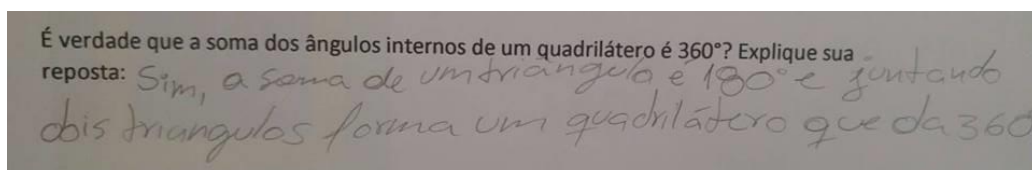 É verdade que a soma dos ângulos internos de um quadrilátero é 360°? Explique sua
reposta: Sim, a soma de um triangulo é 180° e juntando
dois triangulos forma um quadrilátero que da 360